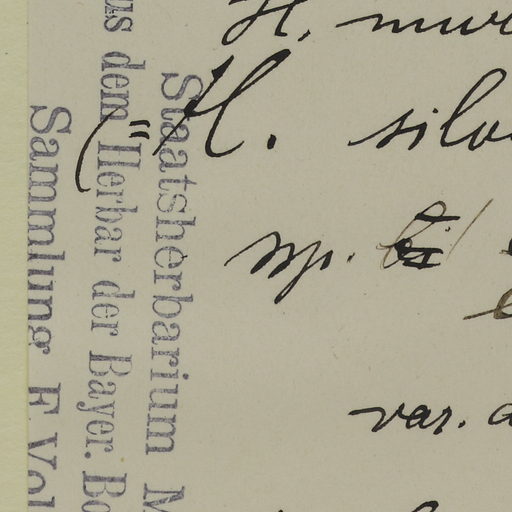 H. mur
(= H. silv
ssp.
var.
Staatsherbarium M
us dem Herbar der Bayer. Bo
Sammlung F. Vol